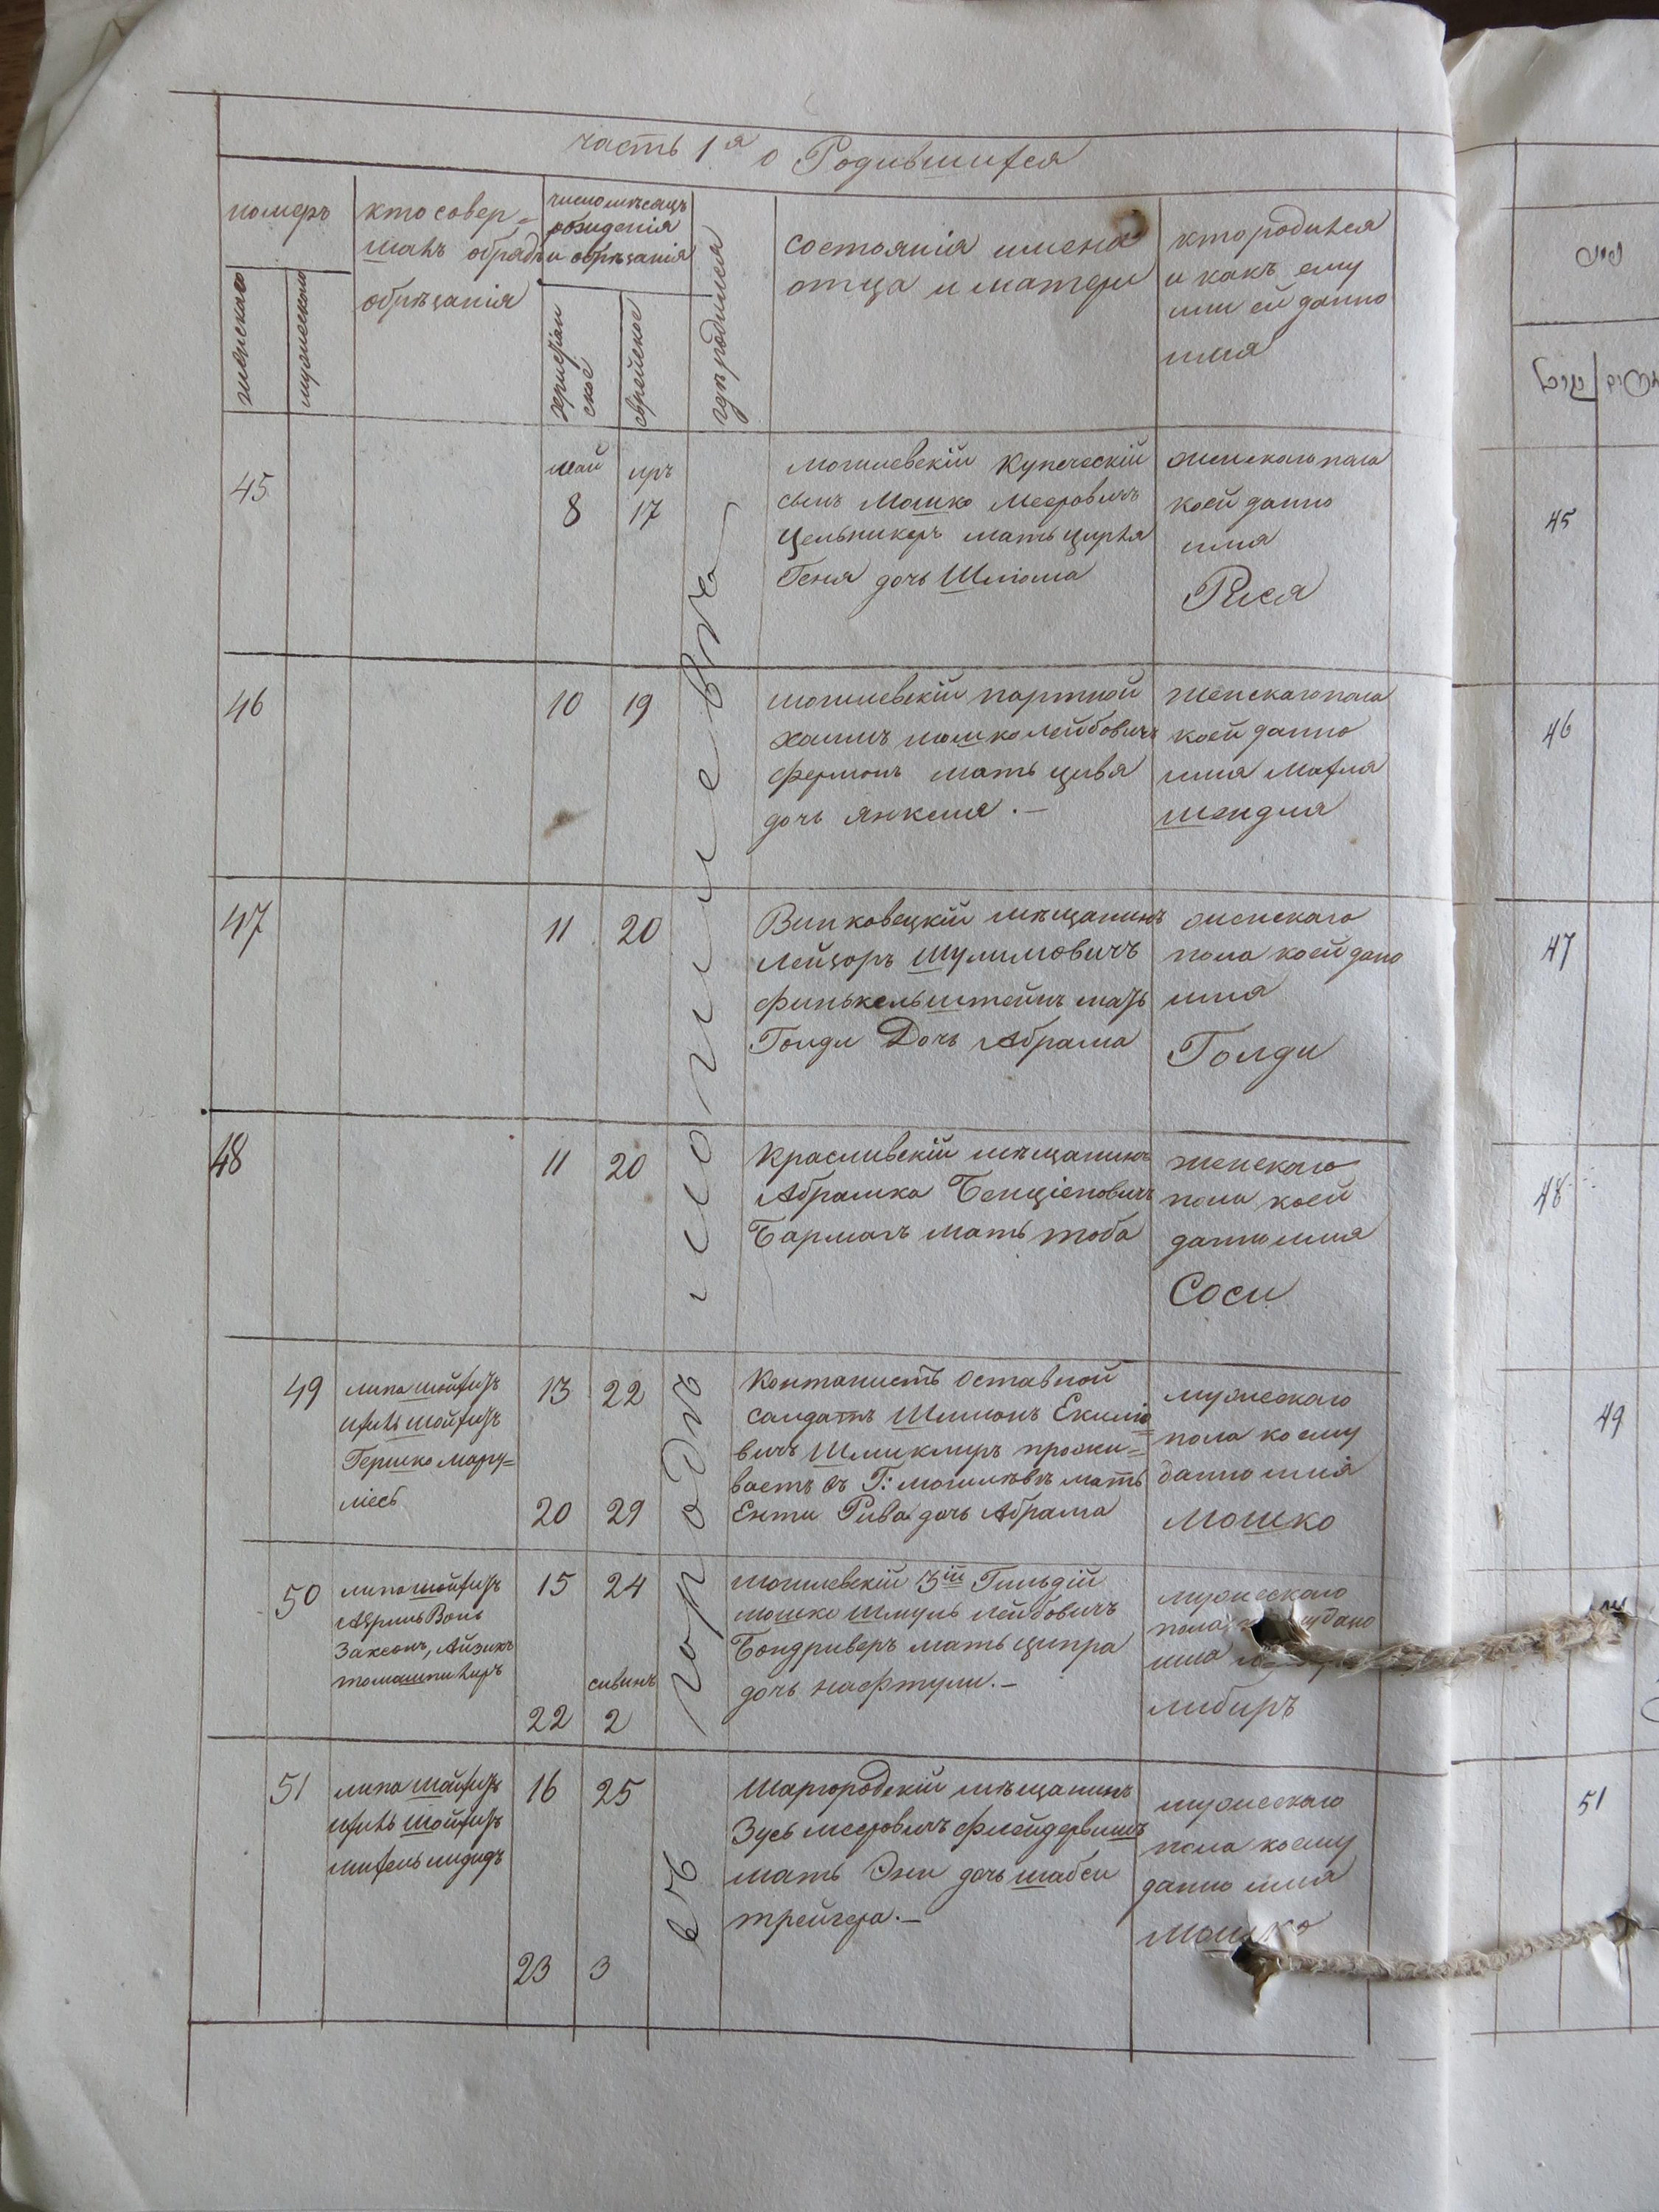 часть 1я о Родившихся
номеръ
женскаго
мужескаго
кто совер=
шалъ обрядъ
обрѣзанія
число мѣсяцъ
рожденія
и обрѣзанія
христіан
ское
еврейское
гдѣ родился
состоянія имена
отца и матери
кто родился
и какъ ему
или ей данно
имя
45
май
8
иръ
17
могилевскій Купеческій
сынъ Мошко Мееровичъ
Цельникеръ мать Цирля
Геня дочь Шліома
женскаго пола
коей данно
имя
Рися
46
10
19
могилевскій портной
хаимъ мошко лейбовичъ
Фермонъ мать цивя
дочь янкеля.—
женскаго пола
коей данно
имя Махля
шендля
47
11
20
Виньковецкій мѣщанинъ
Лейзоръ Шулимовичъ
Финькельштейнъ мать
Голди Дочь Абрама
женскаго
пола коей дано
имя
Голди
48
11
20
Красливскій мѣщанинъ
Абрамка Бенціеновичъ
Бармакъ мать тоба
женскаго
пола коей
данно имя
Соси
49
липа шойхетъ
ихиль шойхетъ
Гершко Мару=
лісъ
13
22
20
29
Контанистъ оставной
салдатъ Шлиомъ Екиліо
вичъ Шмиклиръ прожи=
ваетъ въ Г: могилѣвѣ мать
Енти Рива дочь Абрама
мужескаго
пола коему
данно имя
Мошко
50
липа шойхетъ
Аврумъ Воль
Заксонъ, Айзикъ
томашпилиръ
15
24
22
сивинъ
2
могилевскій 3ій Гильдій
мошко Шмуль лейбовичъ
Бондриверъ мать ципра
дочь нафтули.—
мужескаго
пола дано
имя
либиръ
51
липа шойхетъ
ихиль шойхетъ
михель мидидъ
16
25
23
3
Шаргородскій мѣщанинъ
Зусь мееровичъ Флейдервишъ
мать Эни дочь шабси
трейгера.—
мужескаго
пола коему
данно имя
мошко
въ городѣ могилевѣ
45
46
47
48
49
51